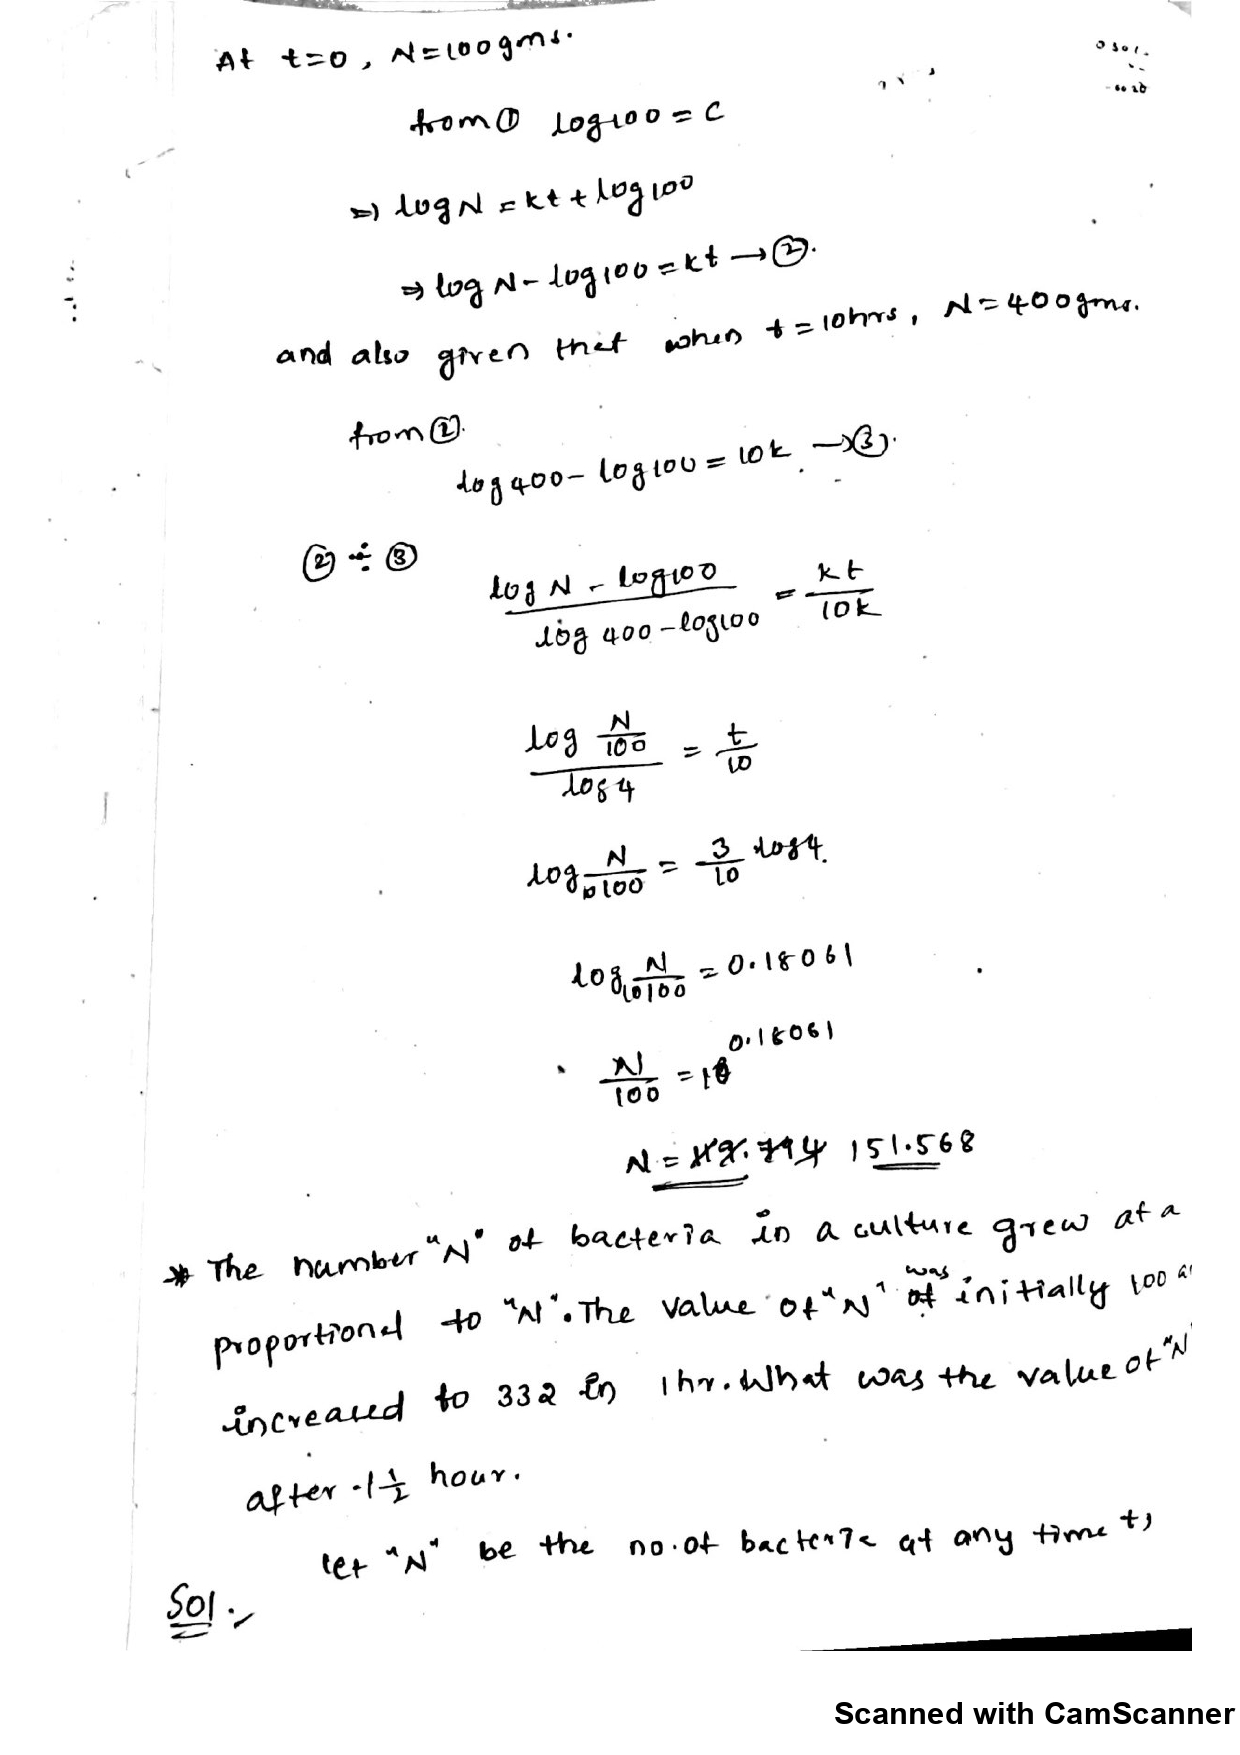 At t=0, N=100gms.
from ① log100 = c
⇒ log N = kt + log 100
⇒ log N - log 100 = kt → ②.
and also given that when t = 10hrs, N = 400gms.
from ②.
log 400 - log 100 = 10k → ③.
② ÷ ③
(log N - log100)/(log 400 - log100) = kt/10k
(log N/100)/(log 4) = t/10
log N/100 = 3/10 log 4.
log₁₀ N/100 = 0.18061
N/100 = 10^0.18061
N = 151.568
* The number "N" of bacteria in a culture grew at a
proportional to "N". The value of "N" was initially 100
increased to 332 in 1hr. What was the value of "N
after 1 1/2 hour.
let "N" be the no. of bacteria at any time t,
Sol :-
Scanned with CamScanner